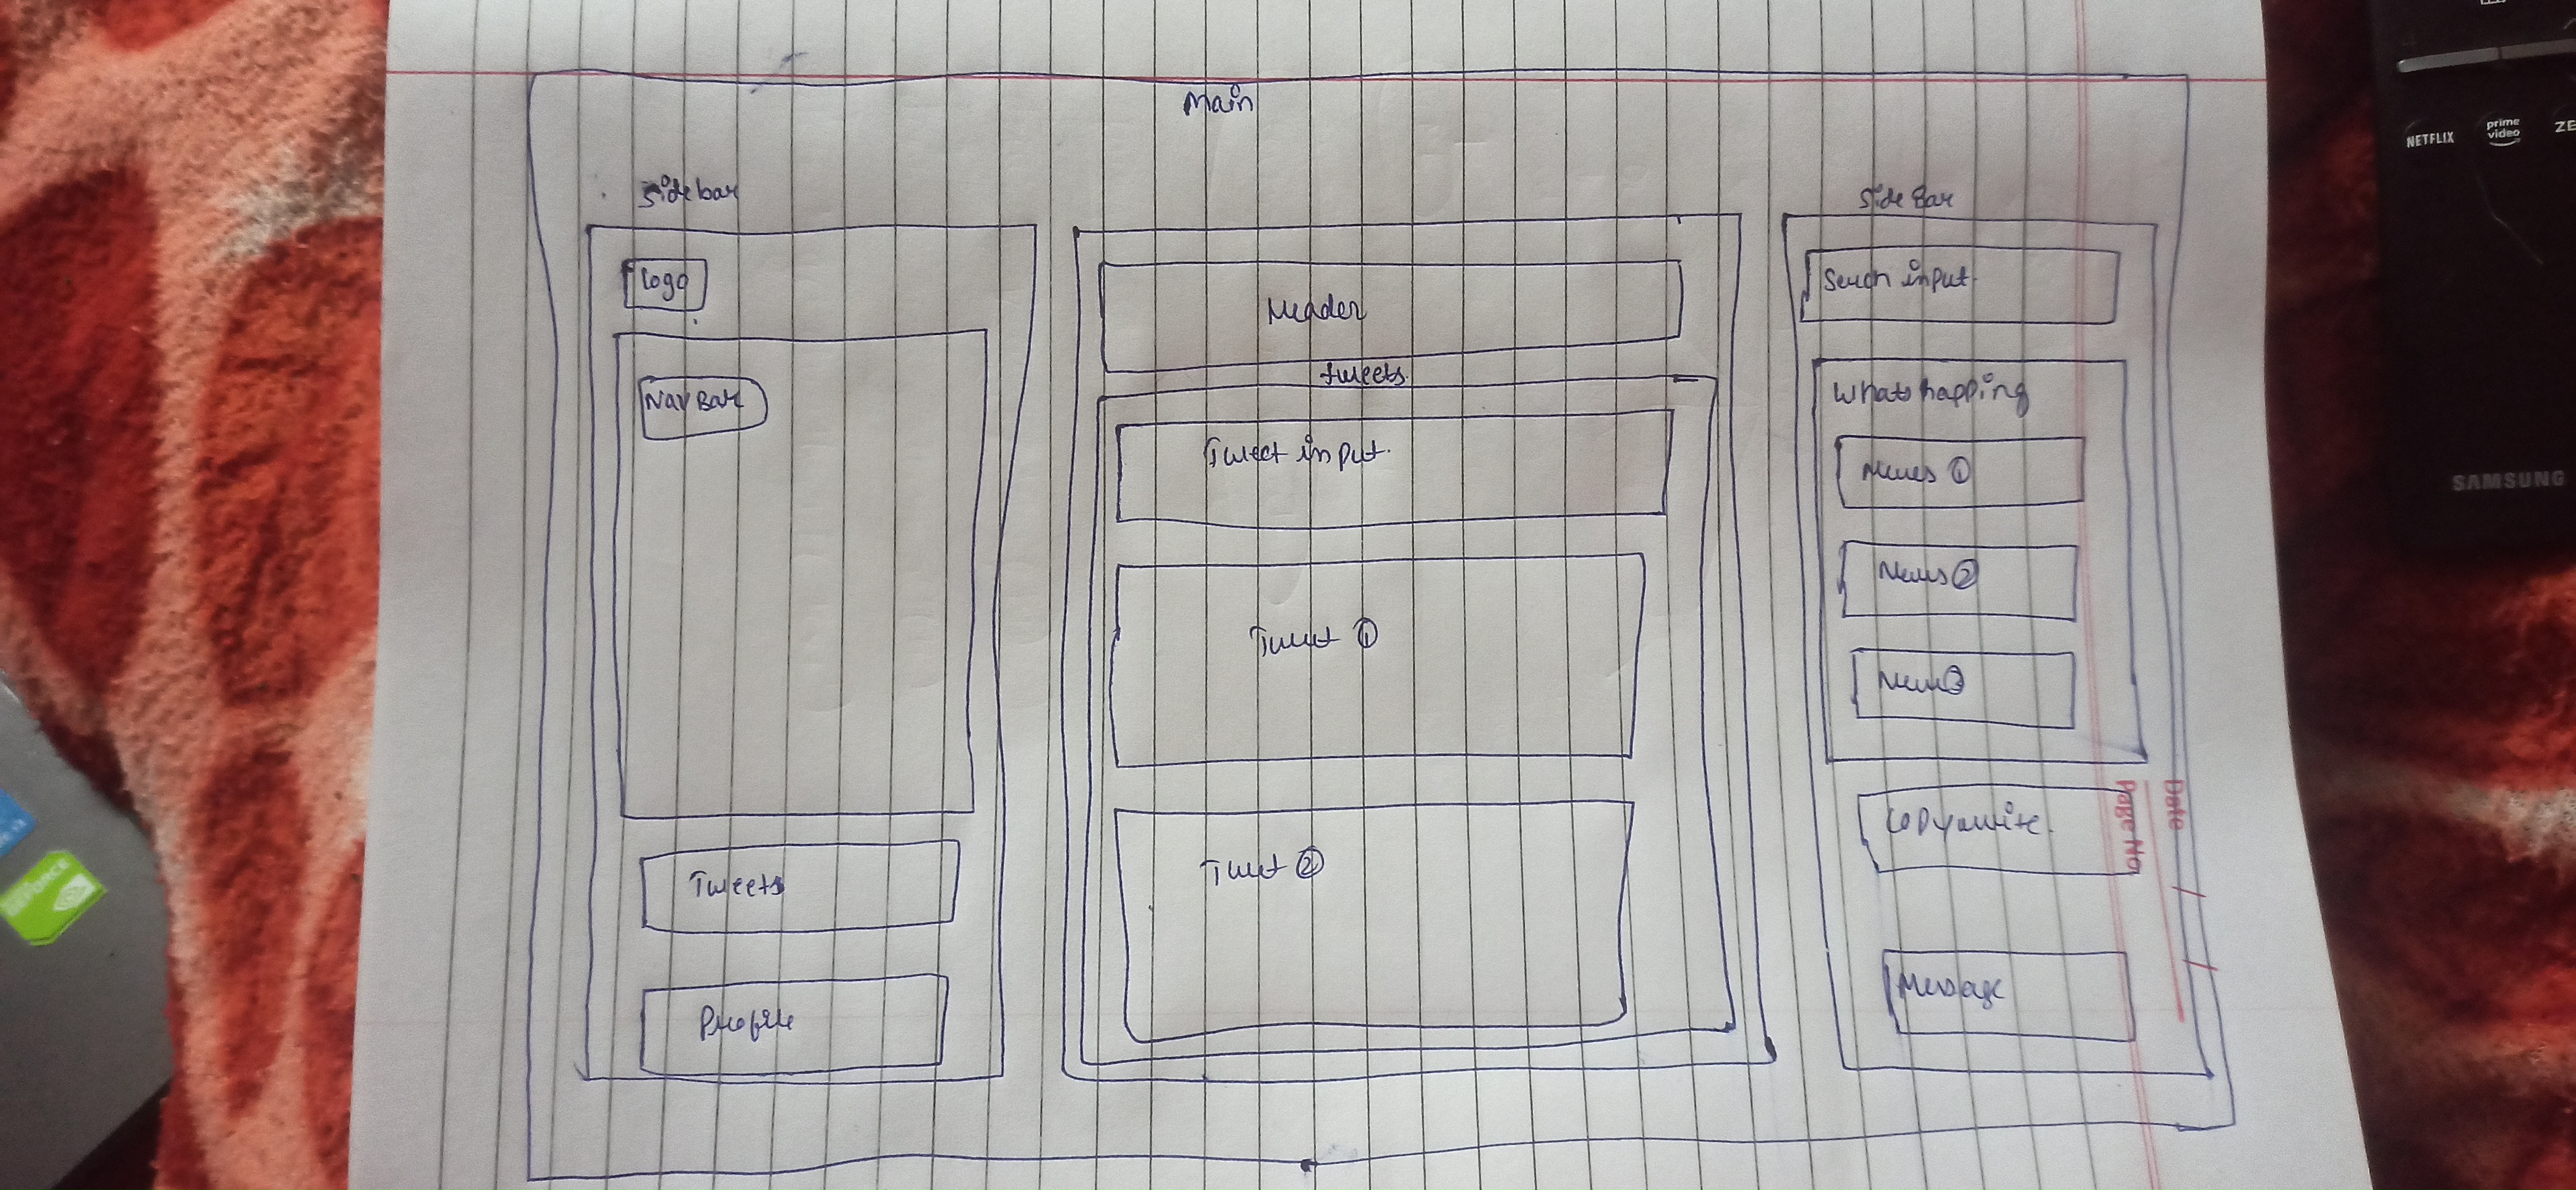 Main
Sidebar
Logo
NavBar
Tweets
Profile
Header
tweets.
Tweet input.
Tweet ①
Tweet ②
Side Bar
Serch input.
Whats happing
News ①
News ②
News ③
CoPyawite.
Message
Date
Page No
NETFLIX
prime
video
ZE
SAMSUNG